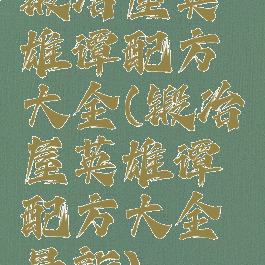 锻冶屋英
雄谭配方
大全(锻冶
屋英雄谭
配方大全
最新)